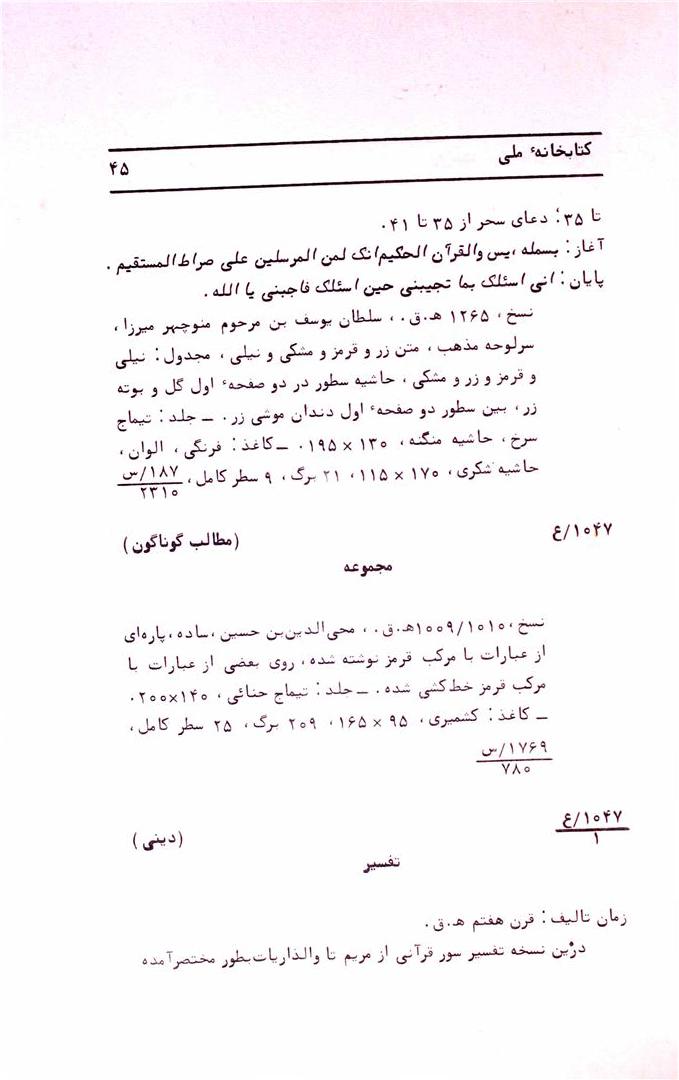 کتابخانهٔ ملی
۴۵
تا ۳۵؛ دعای سحر از ۳۵ تا ۴۱.
آغاز: بسمله، یس والقرآن الحکیم انک لمن المرسلین علی صراط المستقیم.
پایان: انی اسئلک بما تجیبنی حین اسئلک فاجبنی یا الله.
نسخ، ۱۲۶۵ ه.ق.، سلطان یوسف بن مرحوم منوچهر میرزا،
سرلوحه مذهب، متن زر و قرمز و مشکی و نیلی، مجدول: نیلی
و قرمز و زر و مشکی، حاشیه سطور در دو صفحهٔ اول گل و بوته
زر، بین سطور دو صفحهٔ اول دندان موشی زر. ـ جلد: تیماج
سرخ، حاشیه منگنه، ۱۳۰ × ۱۹۵. ـ کاغذ: فرنگی، الوان،
حاشیه شکری، ۱۷۰ × ۱۱۵، ۲۱ برگ، ۹ سطر کامل، ۱۸۷/س
۲۳۱۰
۱۰۴۷/ع
(مطالب گوناگون)
مجموعه
نسخ، ۱۰۰۹/۱۰۱۰ه.ق.، محی‌الدین‌بن حسین، ساده، پاره‌ای
از عبارات با مرکب قرمز نوشته شده، روی بعضی از عبارات با
مرکب قرمز خط‌کشی شده. ـ جلد: تیماج حنائی، ۱۴۰×۲۰۰.
ـ کاغذ: کشمیری، ۹۵ × ۱۶۵، ۲۰۹ برگ، ۲۵ سطر کامل،
۱۷۶۹/س
۷۸۰
۱۰۴۷/ع
۱
(دینی)
تفسیر
زمان تالیف: قرن هفتم ه.ق.
درین نسخه تفسیر سور قرآنی از مریم تا والذاریات بطور مختصر آمده